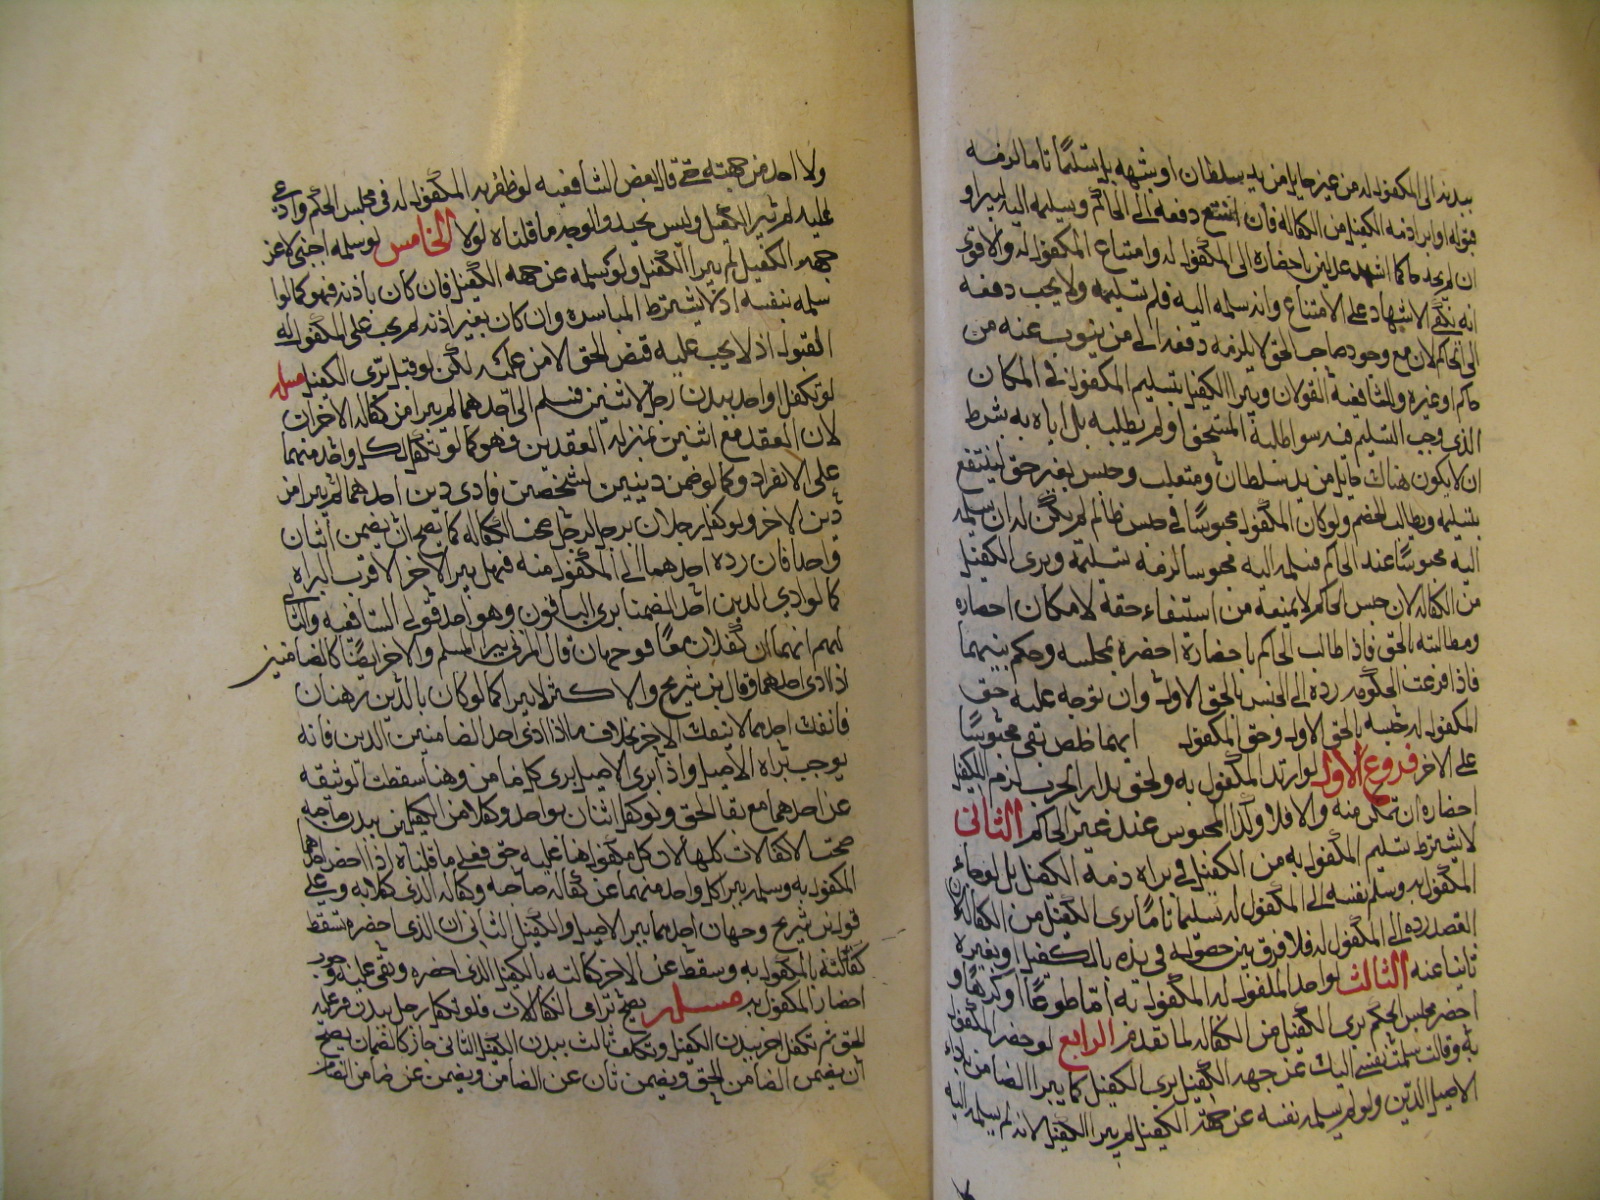 ببدنه الى المكفول له من غير حايل من يد سلطان او شبهه بل تسليمًا تاما لزمه
قبوله او ابراء ذمة الكفيل من الكفالة فان امتنع دفعه الى الحاكم وتسليمه اليه ليبرأ و
ان لم يجد حاكما اشهد عدلين باحضاره الى المكفول له وامتناع المكفول له والاقوى
انه يكفي الاشهاد على الامتناع وانه سلمه اليه فلم يتسلمه ولا يجب دفعه
الى الحاكم لان مع وجود صاحب الحق لا يلزمه دفعه الى من ينوب عنه من
حاكم او غيره وللشافعية القولان ويبرا الكفيل بتسليم المكفول في المكان
الذى وجب التسليم فيه سوا طلبه المستحق او لم يطلبه بل اباه به بشرط
ان لا يكون هناك حايل من يد سلطان ومتغلب وحبس بغير حق لينتفع
بتسليمه ويطالب الخصم ولو كان المكفول محبوسًا في حبس ظالم لم يكن له ان يسلمه
اليه محبوسًا عند الحاكم فسلمه اليه محبوسا لزمه تسليمه وبرى الكفيل
من الكفالة لان حبس الحاكم لا يمنعه من استيفاء حقه لامكان احضاره
ومطالبته بالحق فاذا طالب الحاكم باحضاره احضره بمجلسه وحكم بينهما
فاذا فرغت الحكومه رده الى الحبس بالحق الاول وان توجه عليه حق
المكفول له حبسه بالحق الاول وحق المكفول ايهما خلص بقى محبوسًا
على الاخر فروع الاول لو ارتد المكفول به ولحق بدار الحرب لزم الكفيل
احضاره ان تمكن منه والا فلا وكذا المحبوس عند غير الحاكم الثانى
لا يشترط تسليم المكفول به من الكفيل في براة ذمة الكفيل بل لو جاء
المكفول به وسلم نفسه الى المكفول له تسليما تامًا برى الكفيل من الكفالة لان
القصد رده الى المكفول له فلا فرق بين حصوله في يده بالكفيل او بغيره
نايبا عنه الثالث لو اخذ المكفول له المكفول به اما طوعًا او كرهًا و
احضر مجلس الحكم برى الكفيل من الكفالة لما تقدم الرابع لو حضر المكفول
به وقال سلمت نفسى اليك عن جهة الكفيل برى الكفيل كما يبرا الضامن باداء
الاصيل الدين ولو لم يسلم نفسه عن جهة الكفيل لم يبرا الكفيل لانه لم يسلمه اليه
ولا احد من جهته حتى قال بعض الشافعيه لو ظفر به المكفول له في مجلس الحكم وادعى
عليه لم يبر الكفيل وليس بجيد والوجه ما قلناه اولا الخامس لو سلمه اجنبى لا عن
جهة الكفيل لم يبرا الكفيل ولو سلمه عن جهة الكفيل فان كان باذنه فهو كما لو
سلمه بنفسه اذ لا يشترط المباشرة وان كان بغير اذنه لم يجب على المكفول له
القبول اذ لا يجب عليه قبض الحق الا ممن عليه لكن لو قبل برى الكفيل مسله
لو تكفل واحد ببدن رجل لاثنين فسلم الى احدهما لم يبرا من كفالة الاخر لان
لان العقد مع اثنين بمنزلة العقدين فهو كما لو تكفل لكل واحد منهما
على الانفراد وكما لو ضمن دينين لشخصين فادى دين احدهما لم يبرا من
دين الاخر ولو كفل رجلان برجل لرجل صحت الكفالة كما يصح ان يضمن اثنان
واحدا فان رده احدهما الى المكفول منه فهل يبرا الاخر الاقرب البراه
كما لو ادى الدين احد الضمنا برى الباقون وهو احد قولى الشافعيه والثانى
لهم انهما ان كفلا معًا فوجهان قال المزنى يبرا المسلم والاخر ايضًا كالضامنين
اذا ادى احدهما وقال بن شريح والاكثر لا يبرا كما لو كان بالدين رهنان
فانفك احدهما لا ينفك الاخر بخلاف ما اذا ادى احد الضامنين الدين فانه
يوجب براة الاصيل واذا برى الاصيل برى كل ضامن وهنا سقطت الوثيقه
عن احدهما مع بقا الحق ولو كفل اثنان بواحد وكفل كل من الكفيلين ببدن صاحبه
صحت الكفالات كلها لان كل مكفول هنا عليه حق فعلى ما قلناه اذا احضر احدهما
المكفول به وسلمه يبرا كل واحد منهما عن كفالة صاحبه وكفالة الذى كفلا به وعلى
قول بن شريح وجهان احدهما يبرا الاصيل والكفيل الثانى ان الذى احضره تسقط
كفالته بالمكفول به وسقط عن الاخر كفالته بالكفيل الذى احضره وبقى عليه وجوب
احضار المكفول به مسله يصح ترامى الكفالات فلو تكفل رجل ببدن من عليه
الحق ثم تكفل اخر ببدن الكفيل وتكفل ثالث ببدن الكفيل الثانى جاز كالضمان يصح
ان يضمن الضامن للحق ويضمن ثان عن الضامن ويضمن عن ضامن الضامن